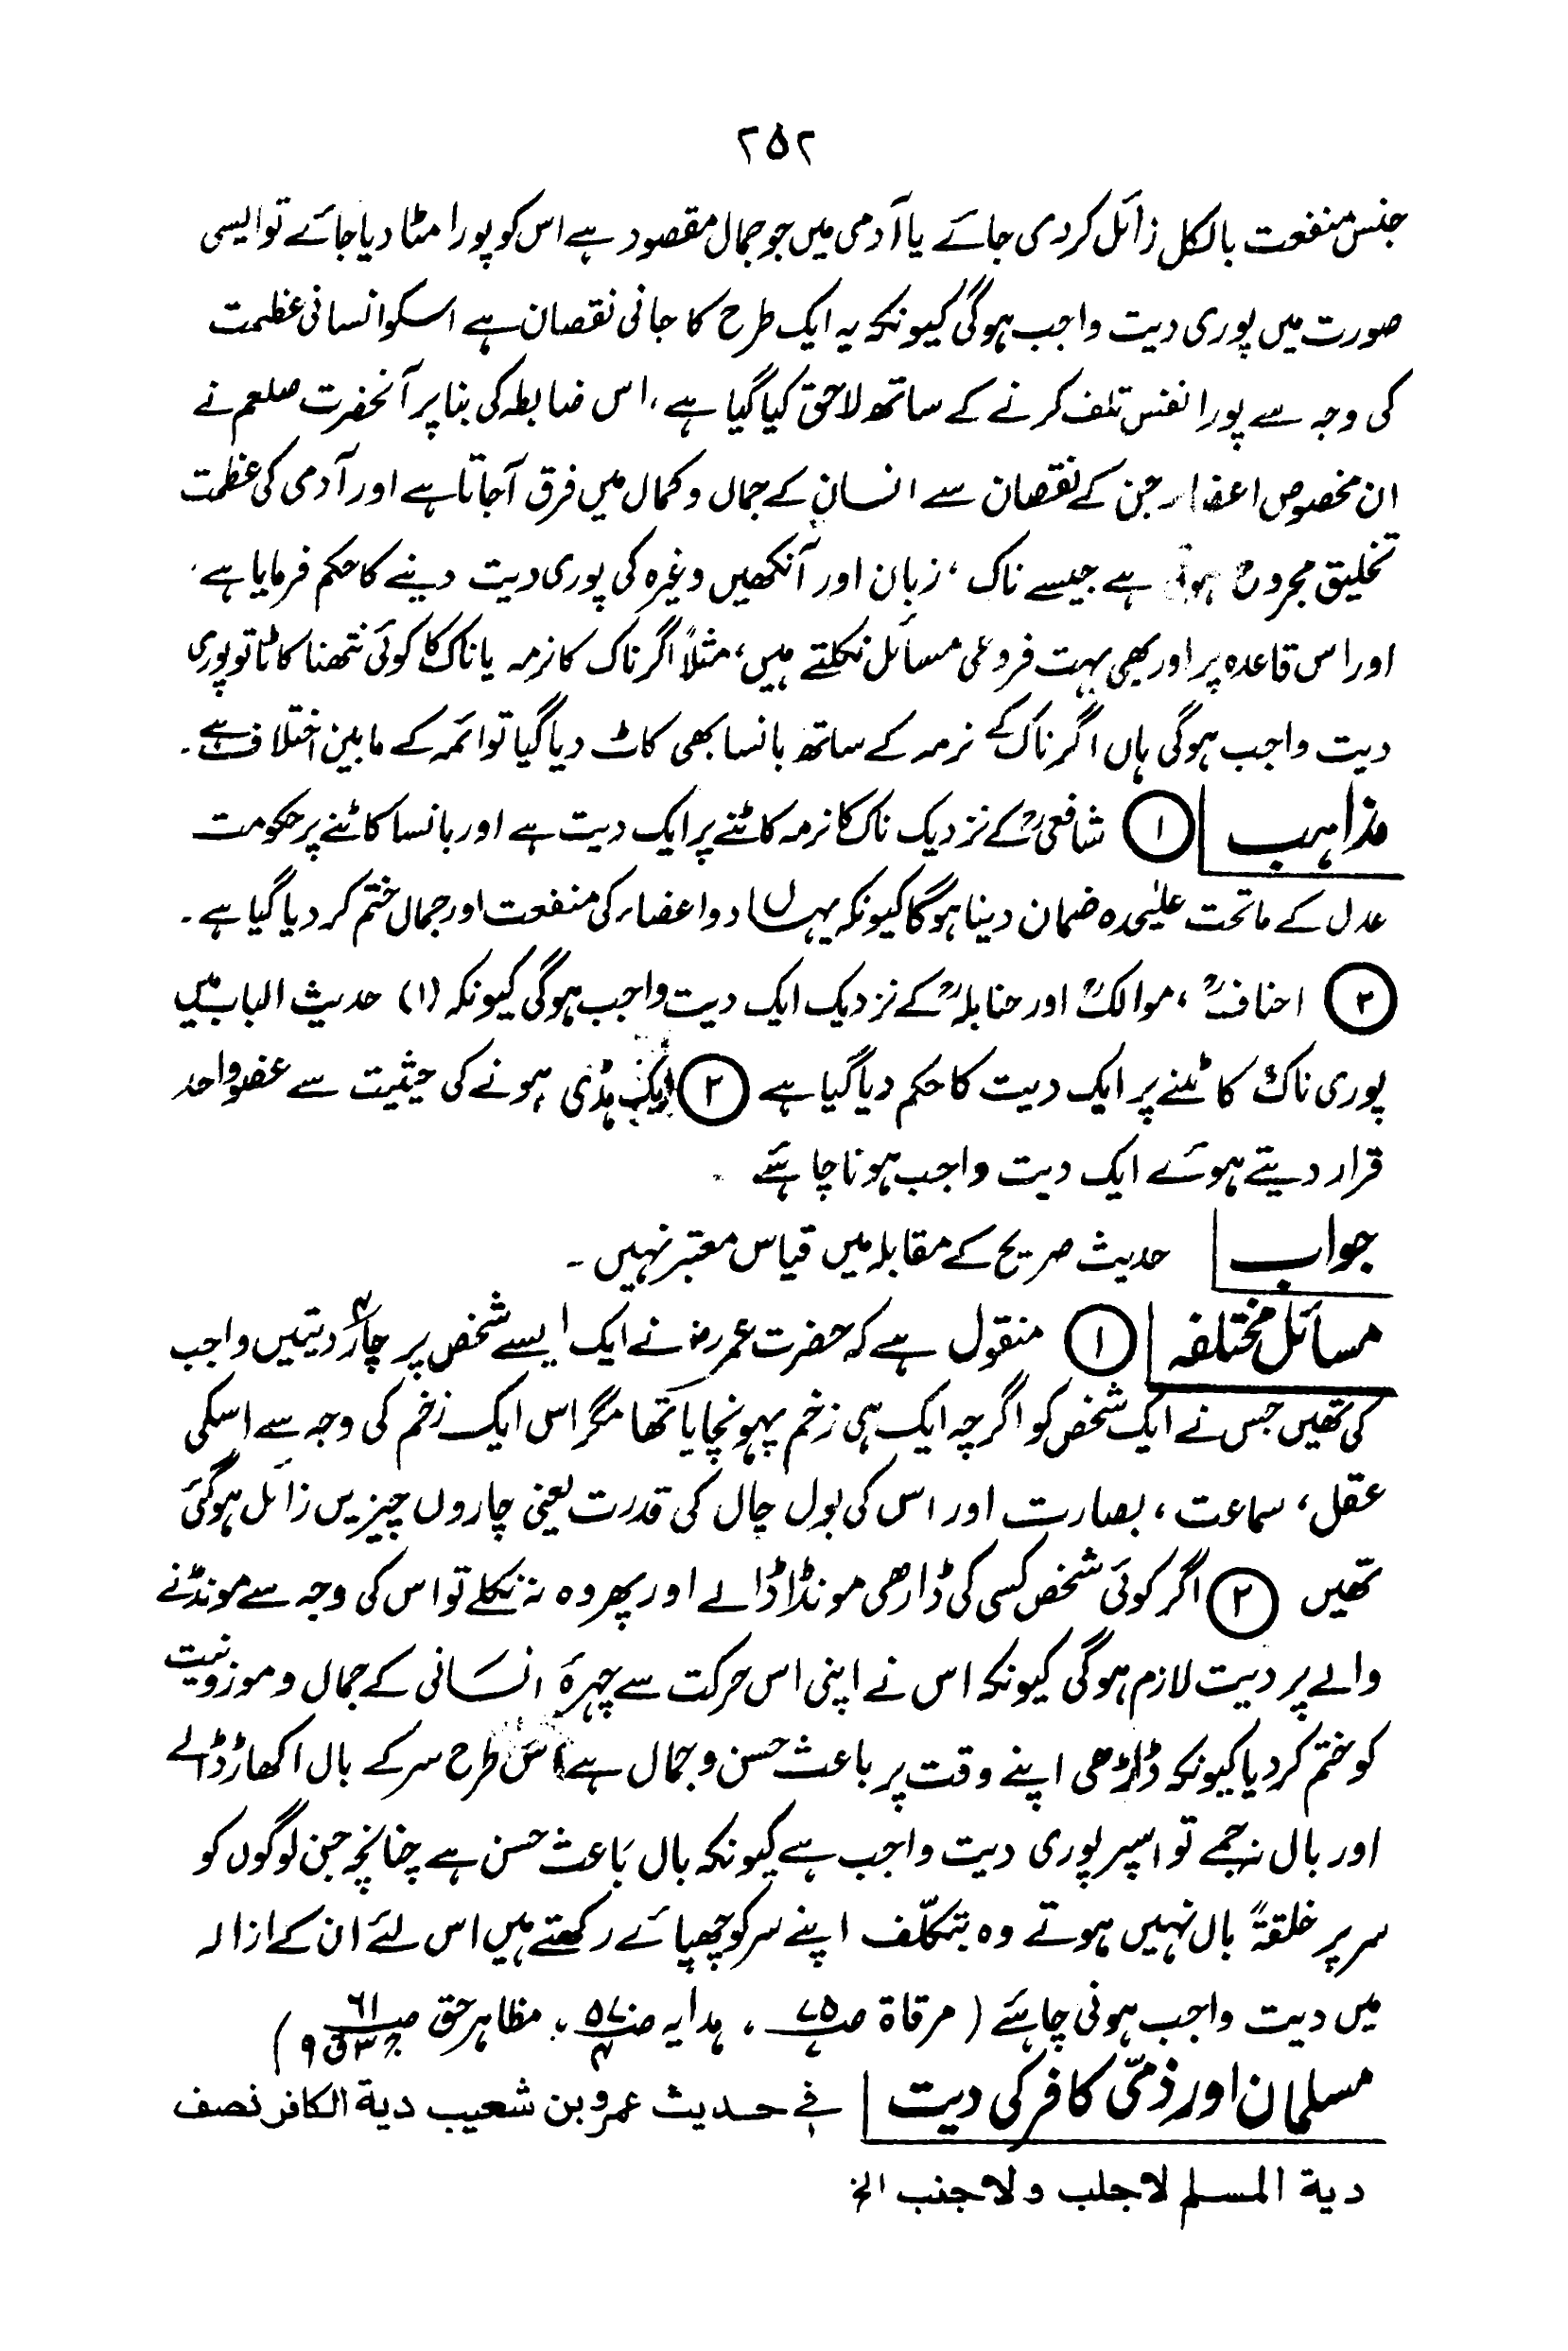 ۲۵۲
جنس منفعت بالکل زائل کردی جائے یا آدمی میں جو جمال مقصود ہے اس کو پورا مٹا دیا جائے تو ایسی
صورت میں پوری دیت واجب ہوگی کیونکہ یہ ایک طرح کا جانی نقصان ہے اسکو انسانی عظمت
کی وجہ سے پورا نفس تلف کرنے کے ساتھ لاحق کیا گیا ہے، اس ضابطہ کی بنا پر آنحضرت صلعم نے
ان مخصوص اعضاء جن کے نقصان سے انسان کے جمال و کمال میں فرق آجاتا ہے اور آدمی کی عظمت
تخلیق مجروح ہوتی ہے جیسے ناک، زبان اور آنکھیں وغیرہ کی پوری دیت دینے کا حکم فرمایا ہے،
اور اس قاعدہ پر اور بھی بہت فروعی مسائل نکلتے ہیں، مثلاً اگر ناک کا نرمہ یا ناک کا کوئی نتھنا کاٹا تو پوری
دیت واجب ہوگی ہاں اگر ناک کے نرمہ کے ساتھ بانسا بھی کاٹ دیا گیا تو ائمہ کے مابین اختلاف ہے۔
مذاہب ① شافعیؒ کے نزدیک ناک کا نرمہ کاٹنے پر ایک دیت ہے اور بانسا کاٹنے پر حکومت
عدل کے ماتحت علیٰحدہ ضمان دینا ہوگا کیونکہ یہاں دو اعضاء کی منفعت اور جمال ختم کر دیا گیا ہے۔
② احنافؒ، موالکؒ اور حنابلہؒ کے نزدیک ایک دیت واجب ہوگی کیونکہ (۱) حدیث الباب میں
پوری ناک کاٹنے پر ایک دیت کا حکم دیا گیا ہے ② ایک ہڈی ہونے کی حیثیت سے عضو واحد
قرار دیتے ہوئے ایک دیت واجب ہونا چاہئے
جواب حدیث صریح کے مقابلہ میں قیاس معتبر نہیں۔
مسائل مختلفہ ① منقول ہے کہ حضرت عمرؓ نے ایک ایسے شخص پر چار۴ دیتیں واجب
کی تھیں جس نے ایک شخص کو اگرچہ ایک ہی زخم پہونچایا تھا مگر اس ایک زخم کی وجہ سے اسکی
عقل، سماعت، بصارت اور اس کی بول چال کی قدرت یعنی چاروں چیزیں زائل ہوگئی
تھیں ② اگر کوئی شخص کسی کی ڈارھی مونڈا ڈالے اور پھر وہ نہ نکلے تو اس کی وجہ سے مونڈنے
والے پر دیت لازم ہوگی کیونکہ اس نے اپنی اس حرکت سے چہرۂ انسانی کے جمال و موزونیت
کو ختم کر دیا کیونکہ ڈاڑھی اپنے وقت پر باعث حسن و جمال ہے اس طرح سر کے بال اکھاڑ ڈالے
اور بال نہ جمے تو اسپر پوری دیت واجب ہے کیونکہ بال باعث حسن ہے چنانچہ جن لوگوں کو
سر پر خلقۃً بال نہیں ہوتے وہ بتکلّف اپنے سر کو چھپائے رکھتے ہیں اس لئے ان کے ازالہ
میں دیت واجب ہونی چاہئے (مرقاۃ ، ہدایہ ، مظاہر حق )
مسلمان اور ذمّی کافر کی دیت فی حدیث عمرو بن شعیب دیة الکافر نصف
دیة المسلم لاجلب ولاجنب الخ